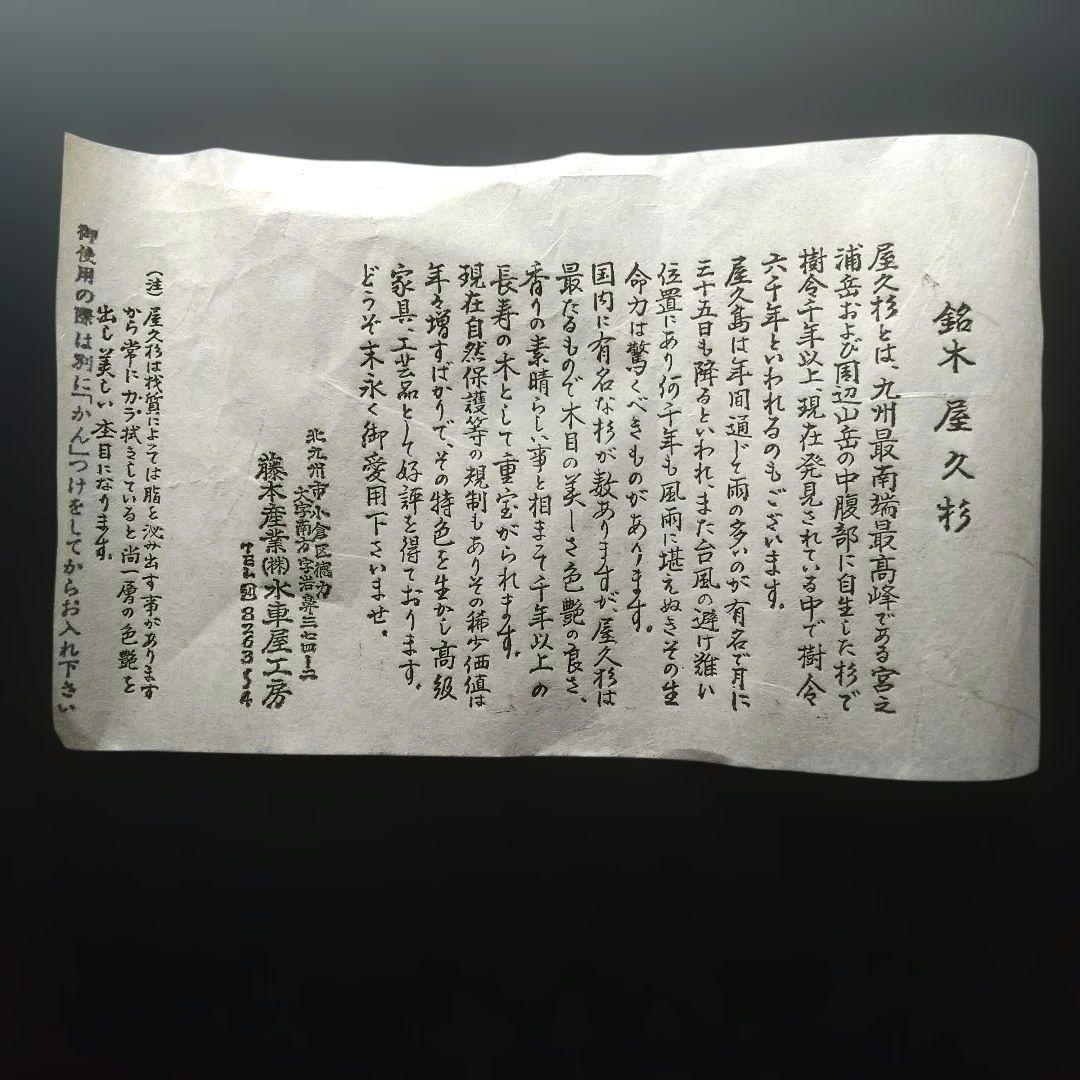 銘木屋久杉
屋久杉とは、九州最南端最高峰である宮之
浦岳および周辺山岳の中腹部に自生した杉で
樹令千年以上、現在発見されている中で樹令
六千年といわれるのもございます。
屋久島は年間通じて雨の多いのが有名で月に
三十五日も降るといわれ、また台風の避け難い
位置にあり何千年も風雨に堪えぬきその生
命力は驚くべきものがあります。
国内に有名な杉が数ありますが屋久杉は
最たるもので木目の美しさ色艶の良さ、
香りの素晴らしい事と相まって千年以上の
長寿の木として重宝がられます。
現在自然保護等の規制もありその稀少価値は
年々増すばかりで、その特色を生かし高級
家具、工芸品として好評を得ております。
どうぞ末永く御愛用下さいませ。
北九州市小倉区徳力
大字南方字岩泉三七四ノ二
藤本産業(株)水車屋工房
TEL 8263
(注)屋久杉は材質によっては脂を泌み出す事があります
から常にカラ拭きしていると尚一層の色艶を
出し美しい杢目になります。
御使用の際は別に「かん」つけをしてからお入れ下さい